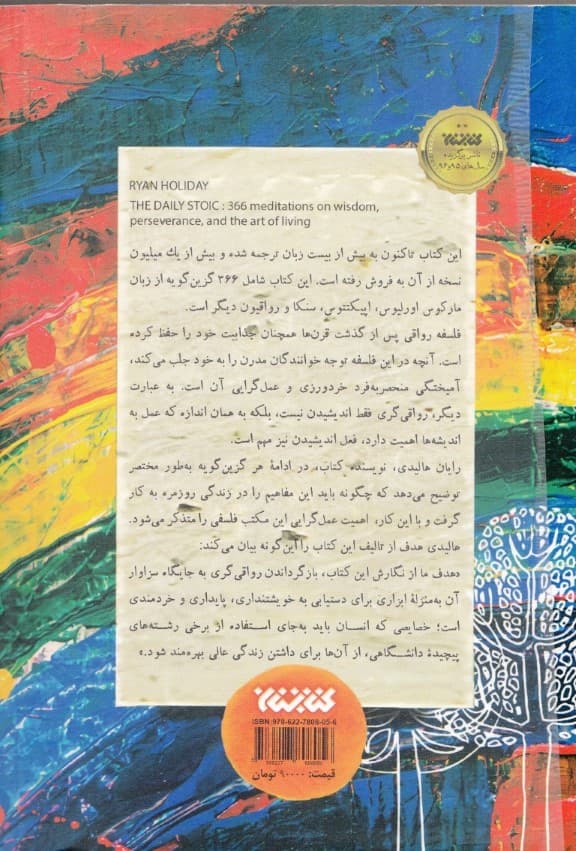 کتابستان
ناشر برگزیده
سال‌های ۹۵ و ۹۶
RYAN HOLIDAY
THE DAILY STOIC : 366 meditations on wisdom,
perseverance, and the art of living
این کتاب تاکنون به بیش از بیست زبان ترجمه شده و بیش از یك میلیون
نسخه از آن به فروش رفته است. این کتاب شامل ۳۶۶ گزین‌گویه از زبان
مارکوس اورلیوس، اپیکتتوس، سنکا و رواقیون دیگر است.
فلسفه رواقی پس از گذشت قرن‌ها همچنان جذابیت خود را حفظ کرده
است. آنچه در این فلسفه توجه خوانندگان مدرن را به خود جلب می‌کند،
آمیختگی منحصربه‌فرد خردورزی و عمل‌گرایی آن است. به عبارت
دیگر، رواقی‌گری فقط اندیشیدن نیست، بلکه به همان اندازه که عمل به
اندیشه‌ها اهمیت دارد، فعل اندیشیدن نیز مهم است.
رایان هالیدی، نویسنده کتاب، در ادامهٔ هر گزین‌گویه به‌طور مختصر
توضیح می‌دهد که چگونه باید این مفاهیم را در زندگی روزمره به کار
گرفت و با این کار، اهمیت عمل‌گرایی این مکتب فلسفی را متذکر می‌شود.
هالیدی هدف از تالیف این کتاب را این‌گونه بیان می‌کند:
«هدف ما از نگارش این کتاب، بازگرداندن رواقی‌گری به جایگاه سزاوار
آن به‌منزلهٔ ابزاری برای دستیابی به خویشتنداری، پایداری و خردمندی
است؛ خصایصی که انسان باید به‌جای استفاده از برخی رشته‌های
پیچیدهٔ دانشگاهی، از آن‌ها برای داشتن زندگی عالی بهره‌مند شود.»
ISBN: 978-622-7808-05-6
قیمت: ۹۰۰۰۰ تومان